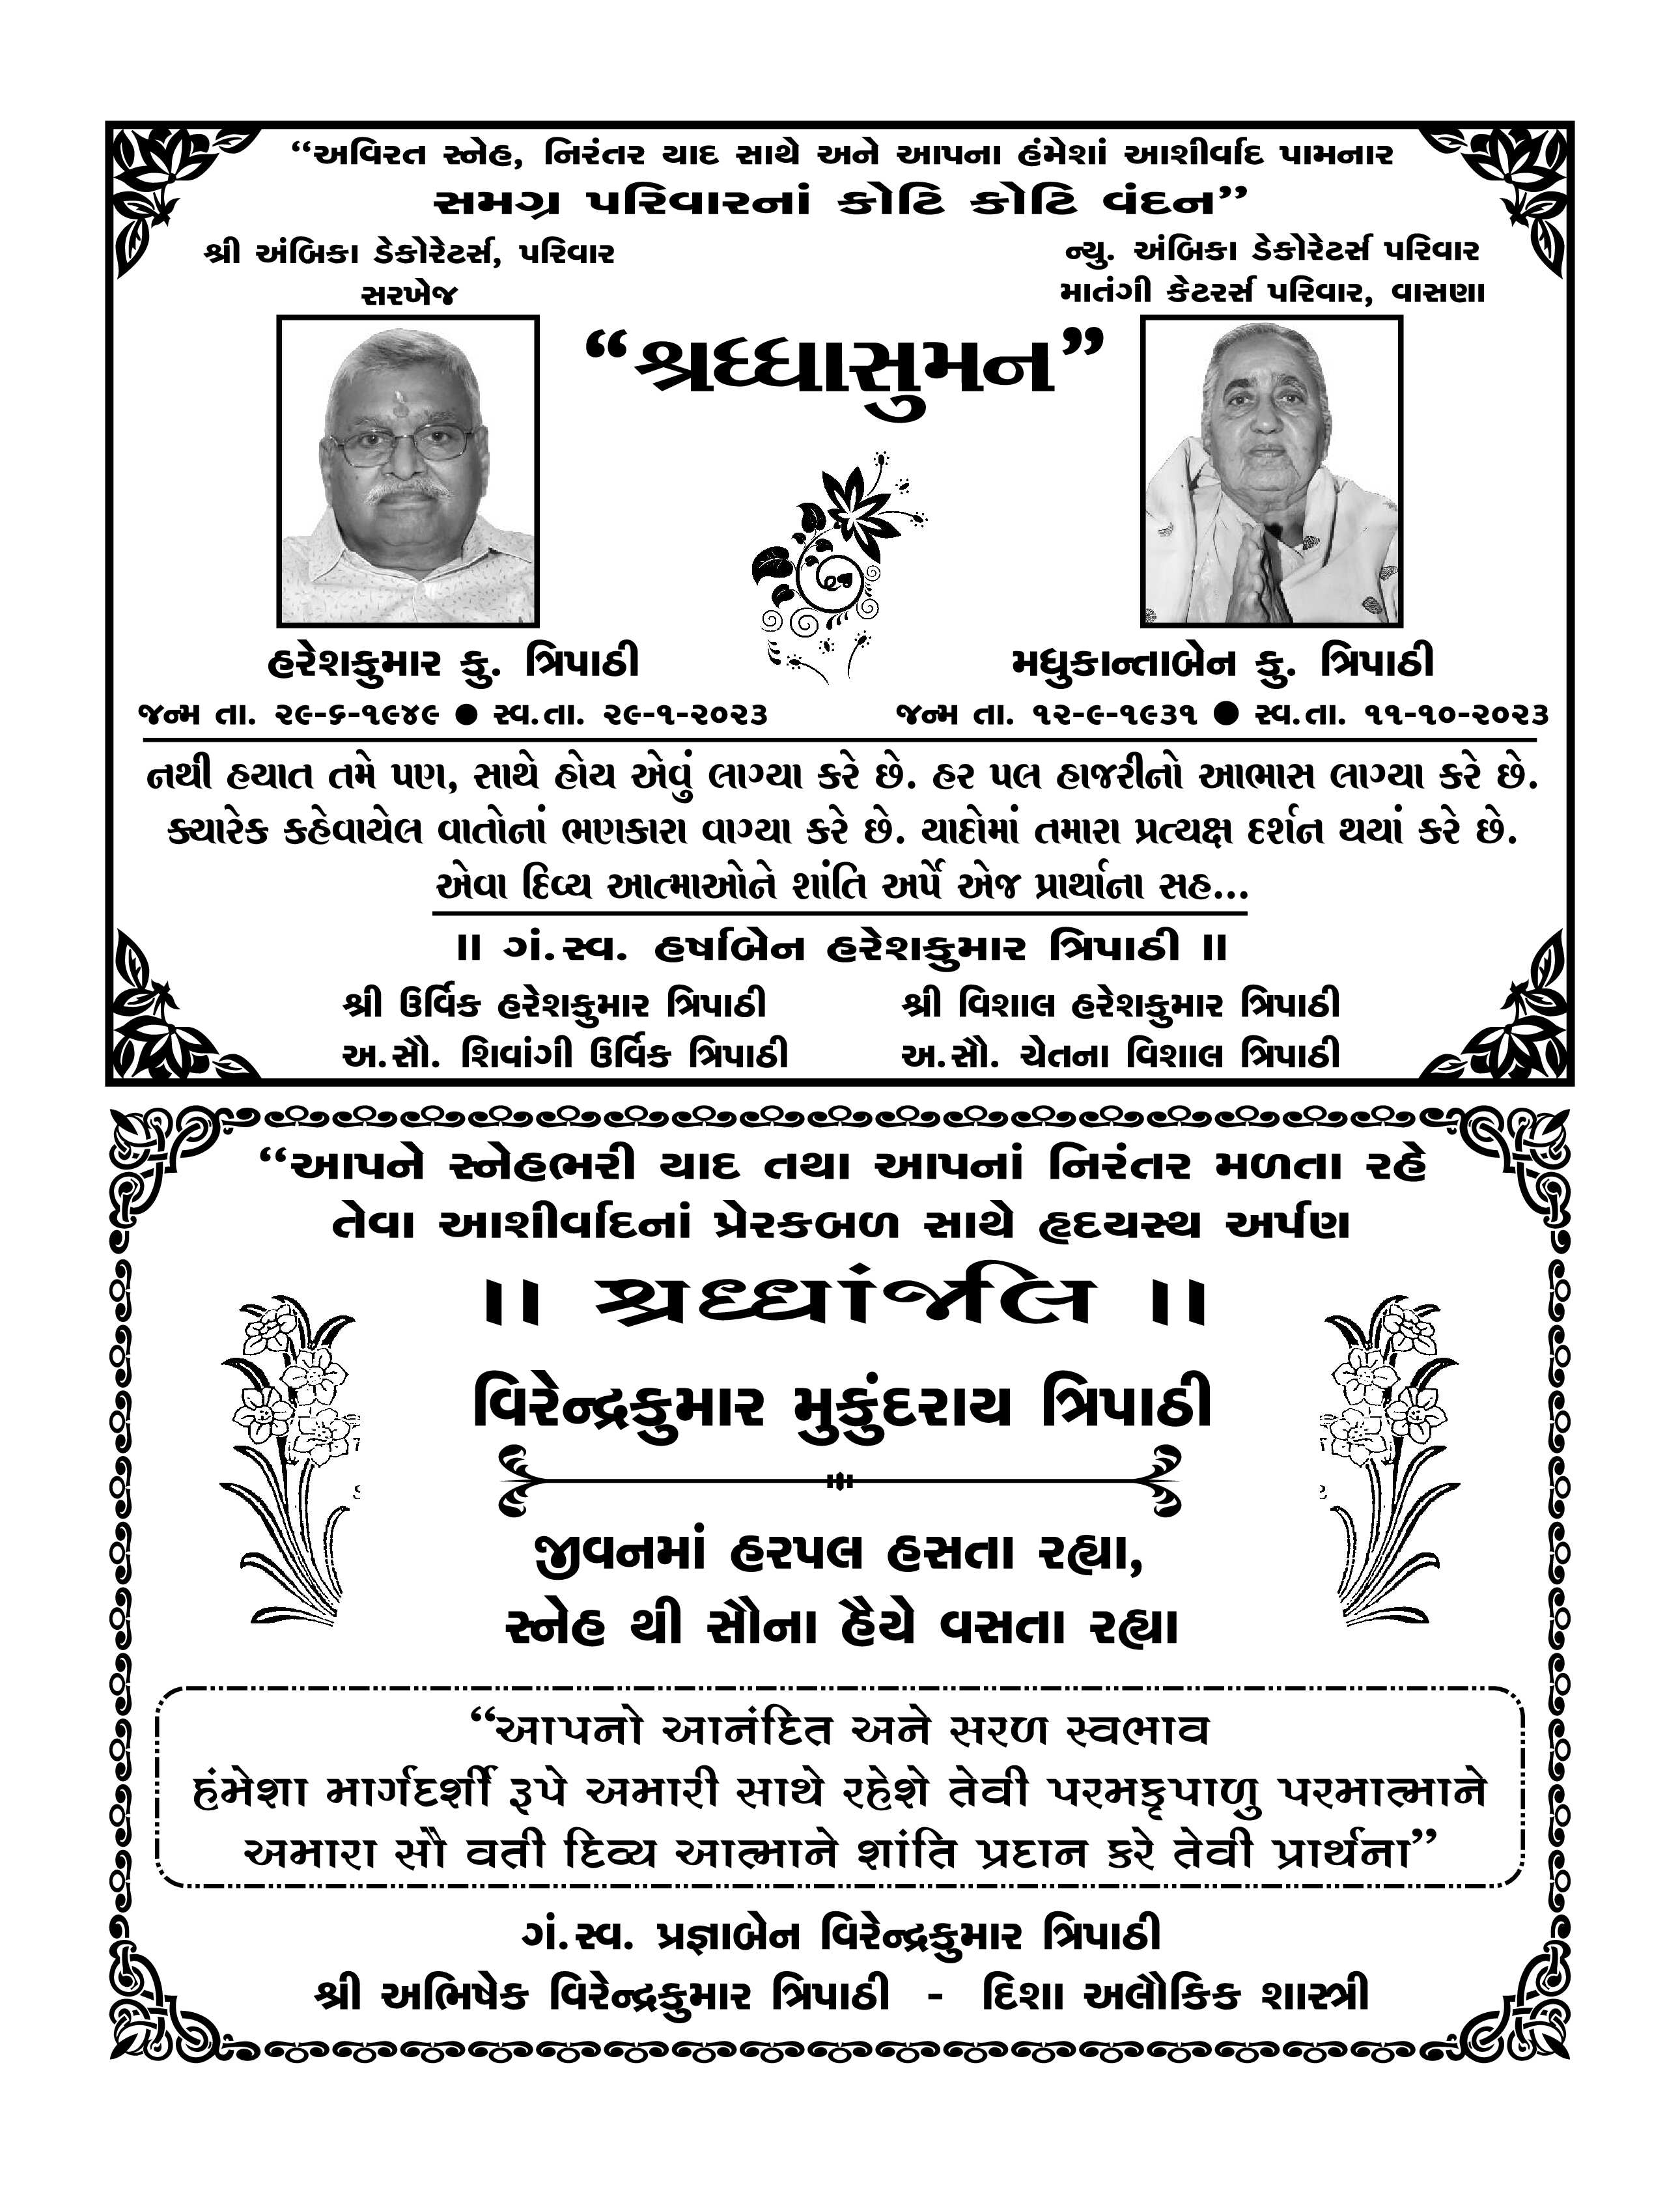 “અવિરત સ્નેહ, નિરંતર યાદ સાથે અને આપના હંમેશાં આશીર્વાદ પામનાર
સમગ્ર પરિવારનાં કોટિ કોટિ વંદન”
શ્રી અંબિકા ડેકોરેટર્સ, પરિવાર
સરખેજ
ન્યુ. અંબિકા ડેકોરેટર્સ પરિવાર
માતંગી કેટરર્સ પરિવાર, વાસણા
“શ્રધ્ધાસુમન”
હરેશકુમાર કુ. ત્રિપાઠી
મધુકાન્તાબેન કુ. ત્રિપાઠી
જન્મ તા. ૨૯-૬-૧૯૪૯ ● સ્વ.તા. ૨૯-૧-૨૦૨૩
જન્મ તા. ૧૨-૯-૧૯૩૧ ● સ્વ.તા. ૧૧-૧૦-૨૦૨૩
નથી હયાત તમે પણ, સાથે હોય એવું લાગ્યા કરે છે. હર પલ હાજરીનો આભાસ લાગ્યા કરે છે.
ક્યારેક કહેવાયેલ વાતોનાં ભણકારા વાગ્યા કરે છે. યાદોમાં તમારા પ્રત્યક્ષ દર્શન થયાં કરે છે.
એવા દિવ્ય આત્માઓને શાંતિ અર્પે એજ પ્રાર્થાના સહ...
॥ ગં.સ્વ. હર્ષાબેન હરેશકુમાર ત્રિપાઠી ॥
શ્રી ઉર્વિક હરેશકુમાર ત્રિપાઠી
શ્રી વિશાલ હરેશકુમાર ત્રિપાઠી
અ.સૌ. શિવાંગી ઉર્વિક ત્રિપાઠી
અ.સૌ. ચેતના વિશાલ ત્રિપાઠી
“આપને સ્નેહભરી યાદ તથા આપનાં નિરંતર મળતા રહે
તેવા આશીર્વાદનાં પ્રેરકબળ સાથે હૃદયસ્થ અર્પણ
॥ શ્રધ્ધાંજલિ ॥
વિરેન્દ્રકુમાર મુકુંદરાય ત્રિપાઠી
જીવનમાં હરપલ હસતા રહ્યા,
સ્નેહ થી સૌના હૈયે વસતા રહ્યા
“આપનો આનંદિત અને સરળ સ્વભાવ
હંમેશા માર્ગદર્શી રૂપે અમારી સાથે રહેશે તેવી પરમકૃપાળુ પરમાત્માને
અમારા સૌ વતી દિવ્ય આત્માને શાંતિ પ્રદાન કરે તેવી પ્રાર્થના”
ગં.સ્વ. પ્રજ્ઞાબેન વિરેન્દ્રકુમાર ત્રિપાઠી
શ્રી અભિષેક વિરેન્દ્રકુમાર ત્રિપાઠી - દિશા અલૌકિક શાસ્ત્રી